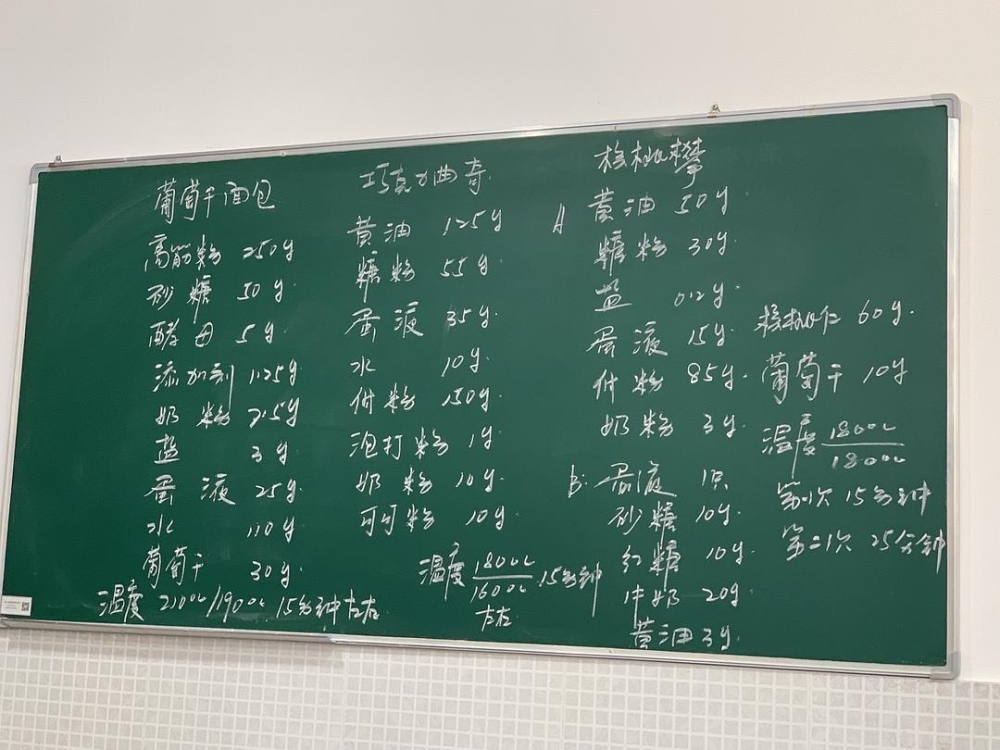 葡萄干面包
高筋粉 250g
砂糖 50g.
酵母 5g
添加剂 1.25g
奶粉 7.5g
盐 3g
蛋液 25g
水 110g
葡萄干 30g.
温度 210℃/190℃ 15分钟左右
巧克力曲奇
黄油 125g
糖粉 55g
蛋液 35g.
水 10g
付粉 150g.
泡打粉 1g
奶粉 10g
可可粉 10g
温度 180℃/160℃ 15分钟
左右
核桃攀
A 黄油 50g.
糖粉 30g.
盐 0.2g
蛋液 15g
付粉 85g.
奶粉 3g.
B. 蛋液 1只
砂糖 10g
红糖 10g
牛奶 20g
黄油 3g.
核桃仁 60g.
葡萄干 10g
温度 180℃/180℃
第一次 15分钟
第二次 25分钟